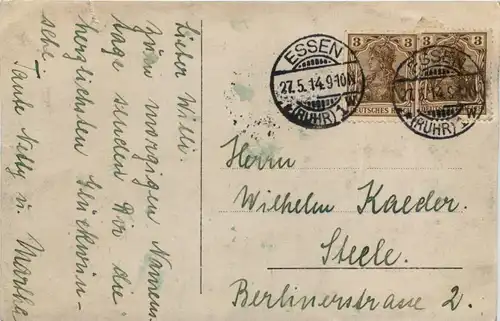 Lieber Willi.
Zum morgigen Namens-
tage senden Dir die
herzlichsten Glückwün-
sche.
Tante Netty u. Martha
ESSEN
27.5.14.9-10N
*(RUHR)1w
3
DEUTSCHES REICH
3
ESSEN
*(RUHR)1w
Herrn
Wilhelm Kaeder.
Steele.
Berlinerstrasse 2.